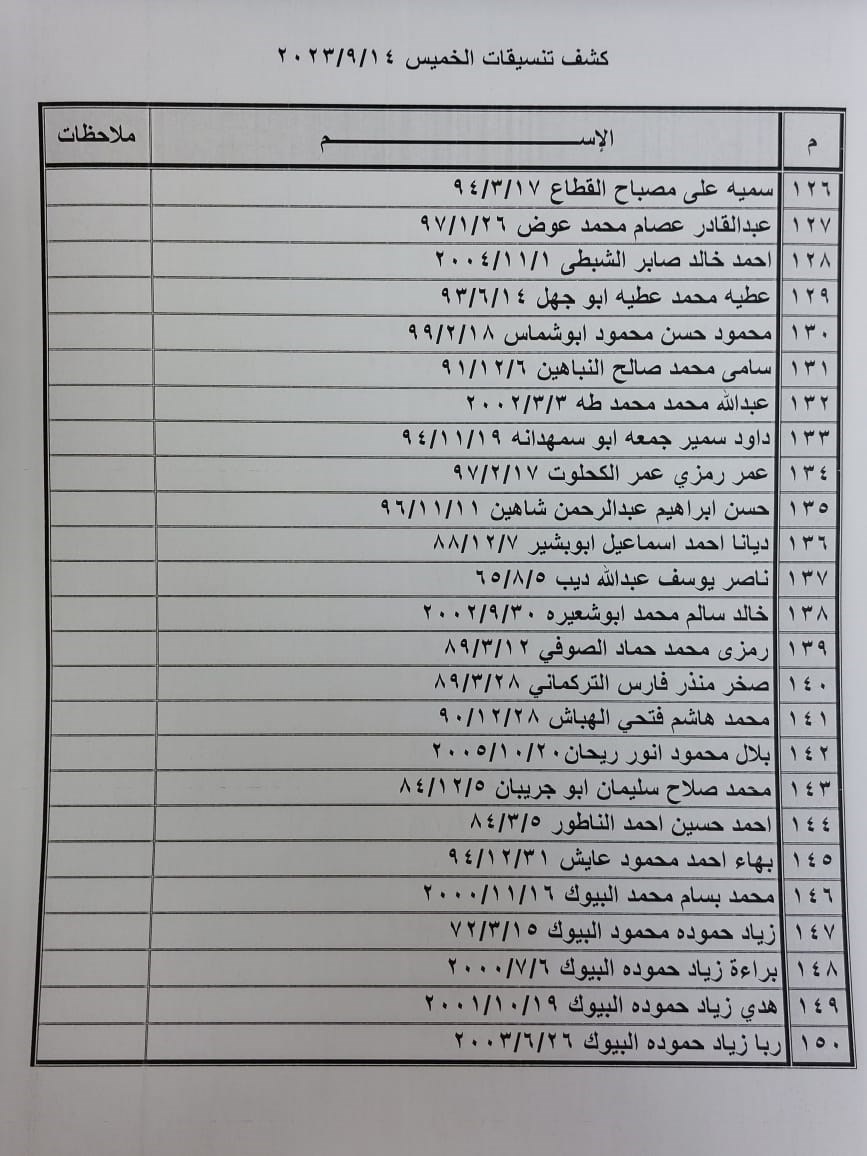 كشف تنسيقات الخميس ٢٠٢٣/٩/١٤
م الإســـــــــــم ملاحظات
١٢٦ سميه على مصباح القطاع ٩٤/٣/١٧
١٢٧ عبدالقادر عصام محمد عوض ٩٧/١/٢٦
١٢٨ احمد خالد صابر الشبطى ٢٠٠٤/١١/١
١٢٩ عطيه محمد عطيه ابو جهل ٩٣/٦/١٤
١٣٠ محمود حسن محمود ابوشماس ٩٩/٢/١٨
١٣١ سامى محمد صالح النباهين ٩١/١٢/٦
١٣٢ عبدالله محمد محمد طه ٢٠٠٢/٣/٣
١٣٣ داود سمير جمعه ابو سمهدانه ٩٤/١١/١٩
١٣٤ عمر رمزي عمر الكحلوت ٩٧/٢/١٧
١٣٥ حسن ابراهيم عبدالرحمن شاهين ٩٦/١١/١١
١٣٦ ديانا احمد اسماعيل ابوبشير ٨٨/١٢/٧
١٣٧ ناصر يوسف عبدالله ديب ٦٥/٨/٥
١٣٨ خالد سالم محمد ابوشعيره ٢٠٠٢/٩/٣٠
١٣٩ رمزى محمد حماد الصوفي ٨٩/٣/١٢
١٤٠ صخر منذر فارس التركماني ٨٩/٣/٢٨
١٤١ محمد هاشم فتحي الهباش ٩٠/١٢/٢٨
١٤٢ بلال محمود انور ريحان٢٠٠٥/١٠/٢٠
١٤٣ محمد صلاح سليمان ابو جريبان ٨٤/١٢/٥
١٤٤ احمد حسين احمد الناطور ٨٤/٣/٥
١٤٥ بهاء احمد محمود عايش ٩٤/١٢/٣١
١٤٦ محمد بسام محمد البيوك ٢٠٠٠/١١/١٦
١٤٧ زياد حموده محمود البيوك ٧٢/٣/١٥
١٤٨ براءة زياد حموده البيوك ٢٠٠٠/٧/٦
١٤٩ هدي زياد حموده البيوك ٢٠٠١/١٠/١٩
١٥٠ ربا زياد حموده البيوك ٢٠٠٣/٦/٢٦